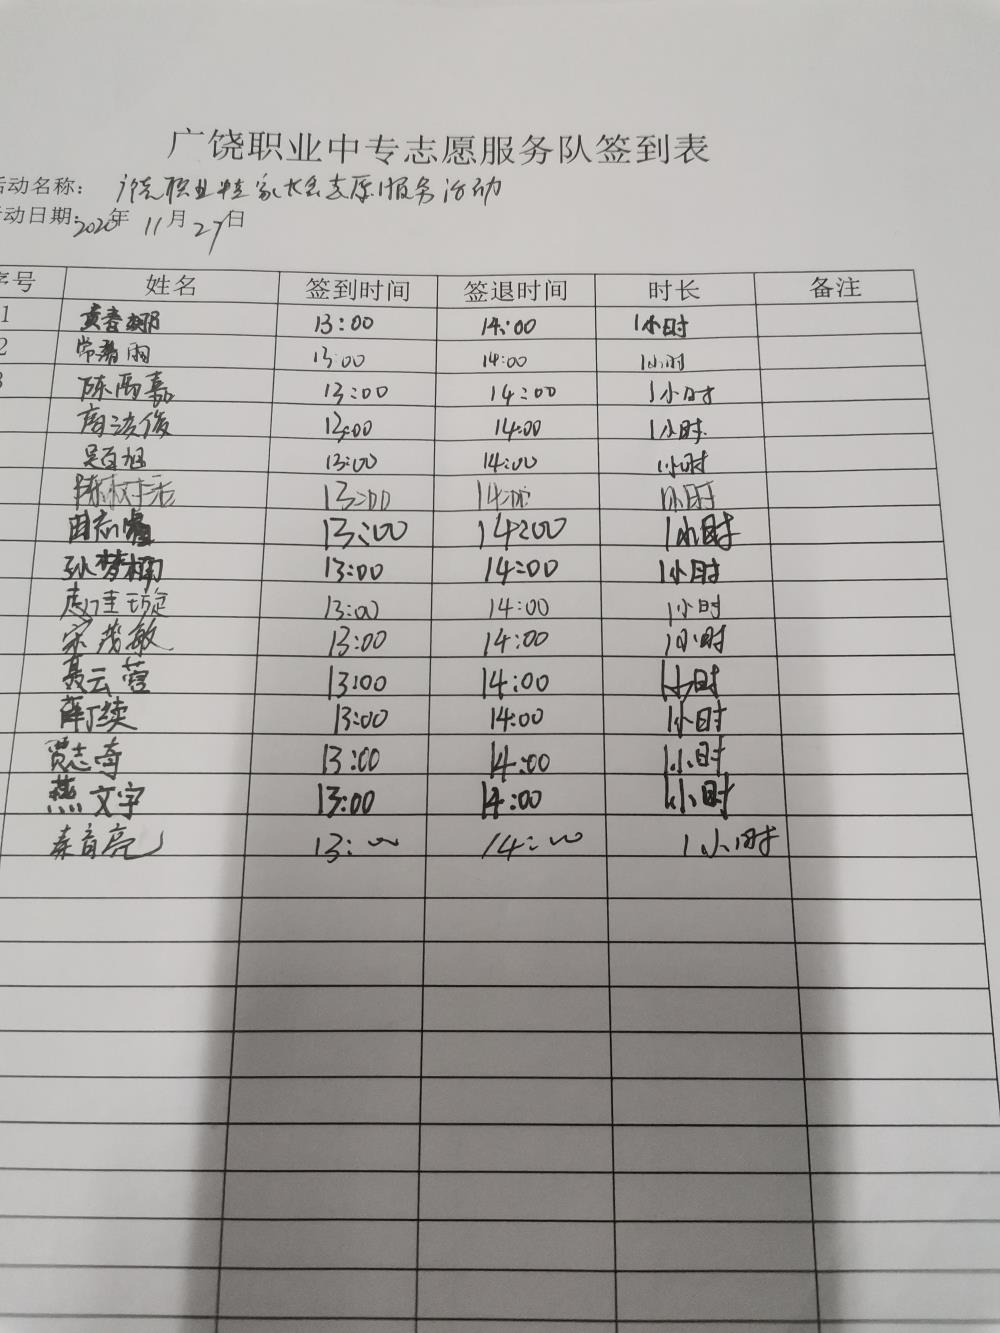 广饶职业中专志愿服务队签到表
活动名称： 广饶职业中专家长会志愿服务活动
活动日期：2020年 11月27日
序号 姓名 签到时间 签退时间 时长 备注
1 黄春娜 13:00 14:00 1小时
2 常 雨 13:00 14:00 1小时
3 陈雨嘉 13:00 14:00 1小时
商法俊 13:00 14:00 1小时
吴百旭 13:00 14:00 1小时
陈 13:00 14:00 1小时
田志 13:00 14:00 1小时
孙梦楠 13:00 14:00 1小时
13:00 14:00 1小时
宋茂敏 13:00 14:00 1小时
聂云蓉 13:00 14:00 1小时
薛 续 13:00 14:00 1小时
贾志奇 13:00 14:00 1小时
燕文宇 13:00 14:00 1小时
秦育亮 13:00 14:00 1小时